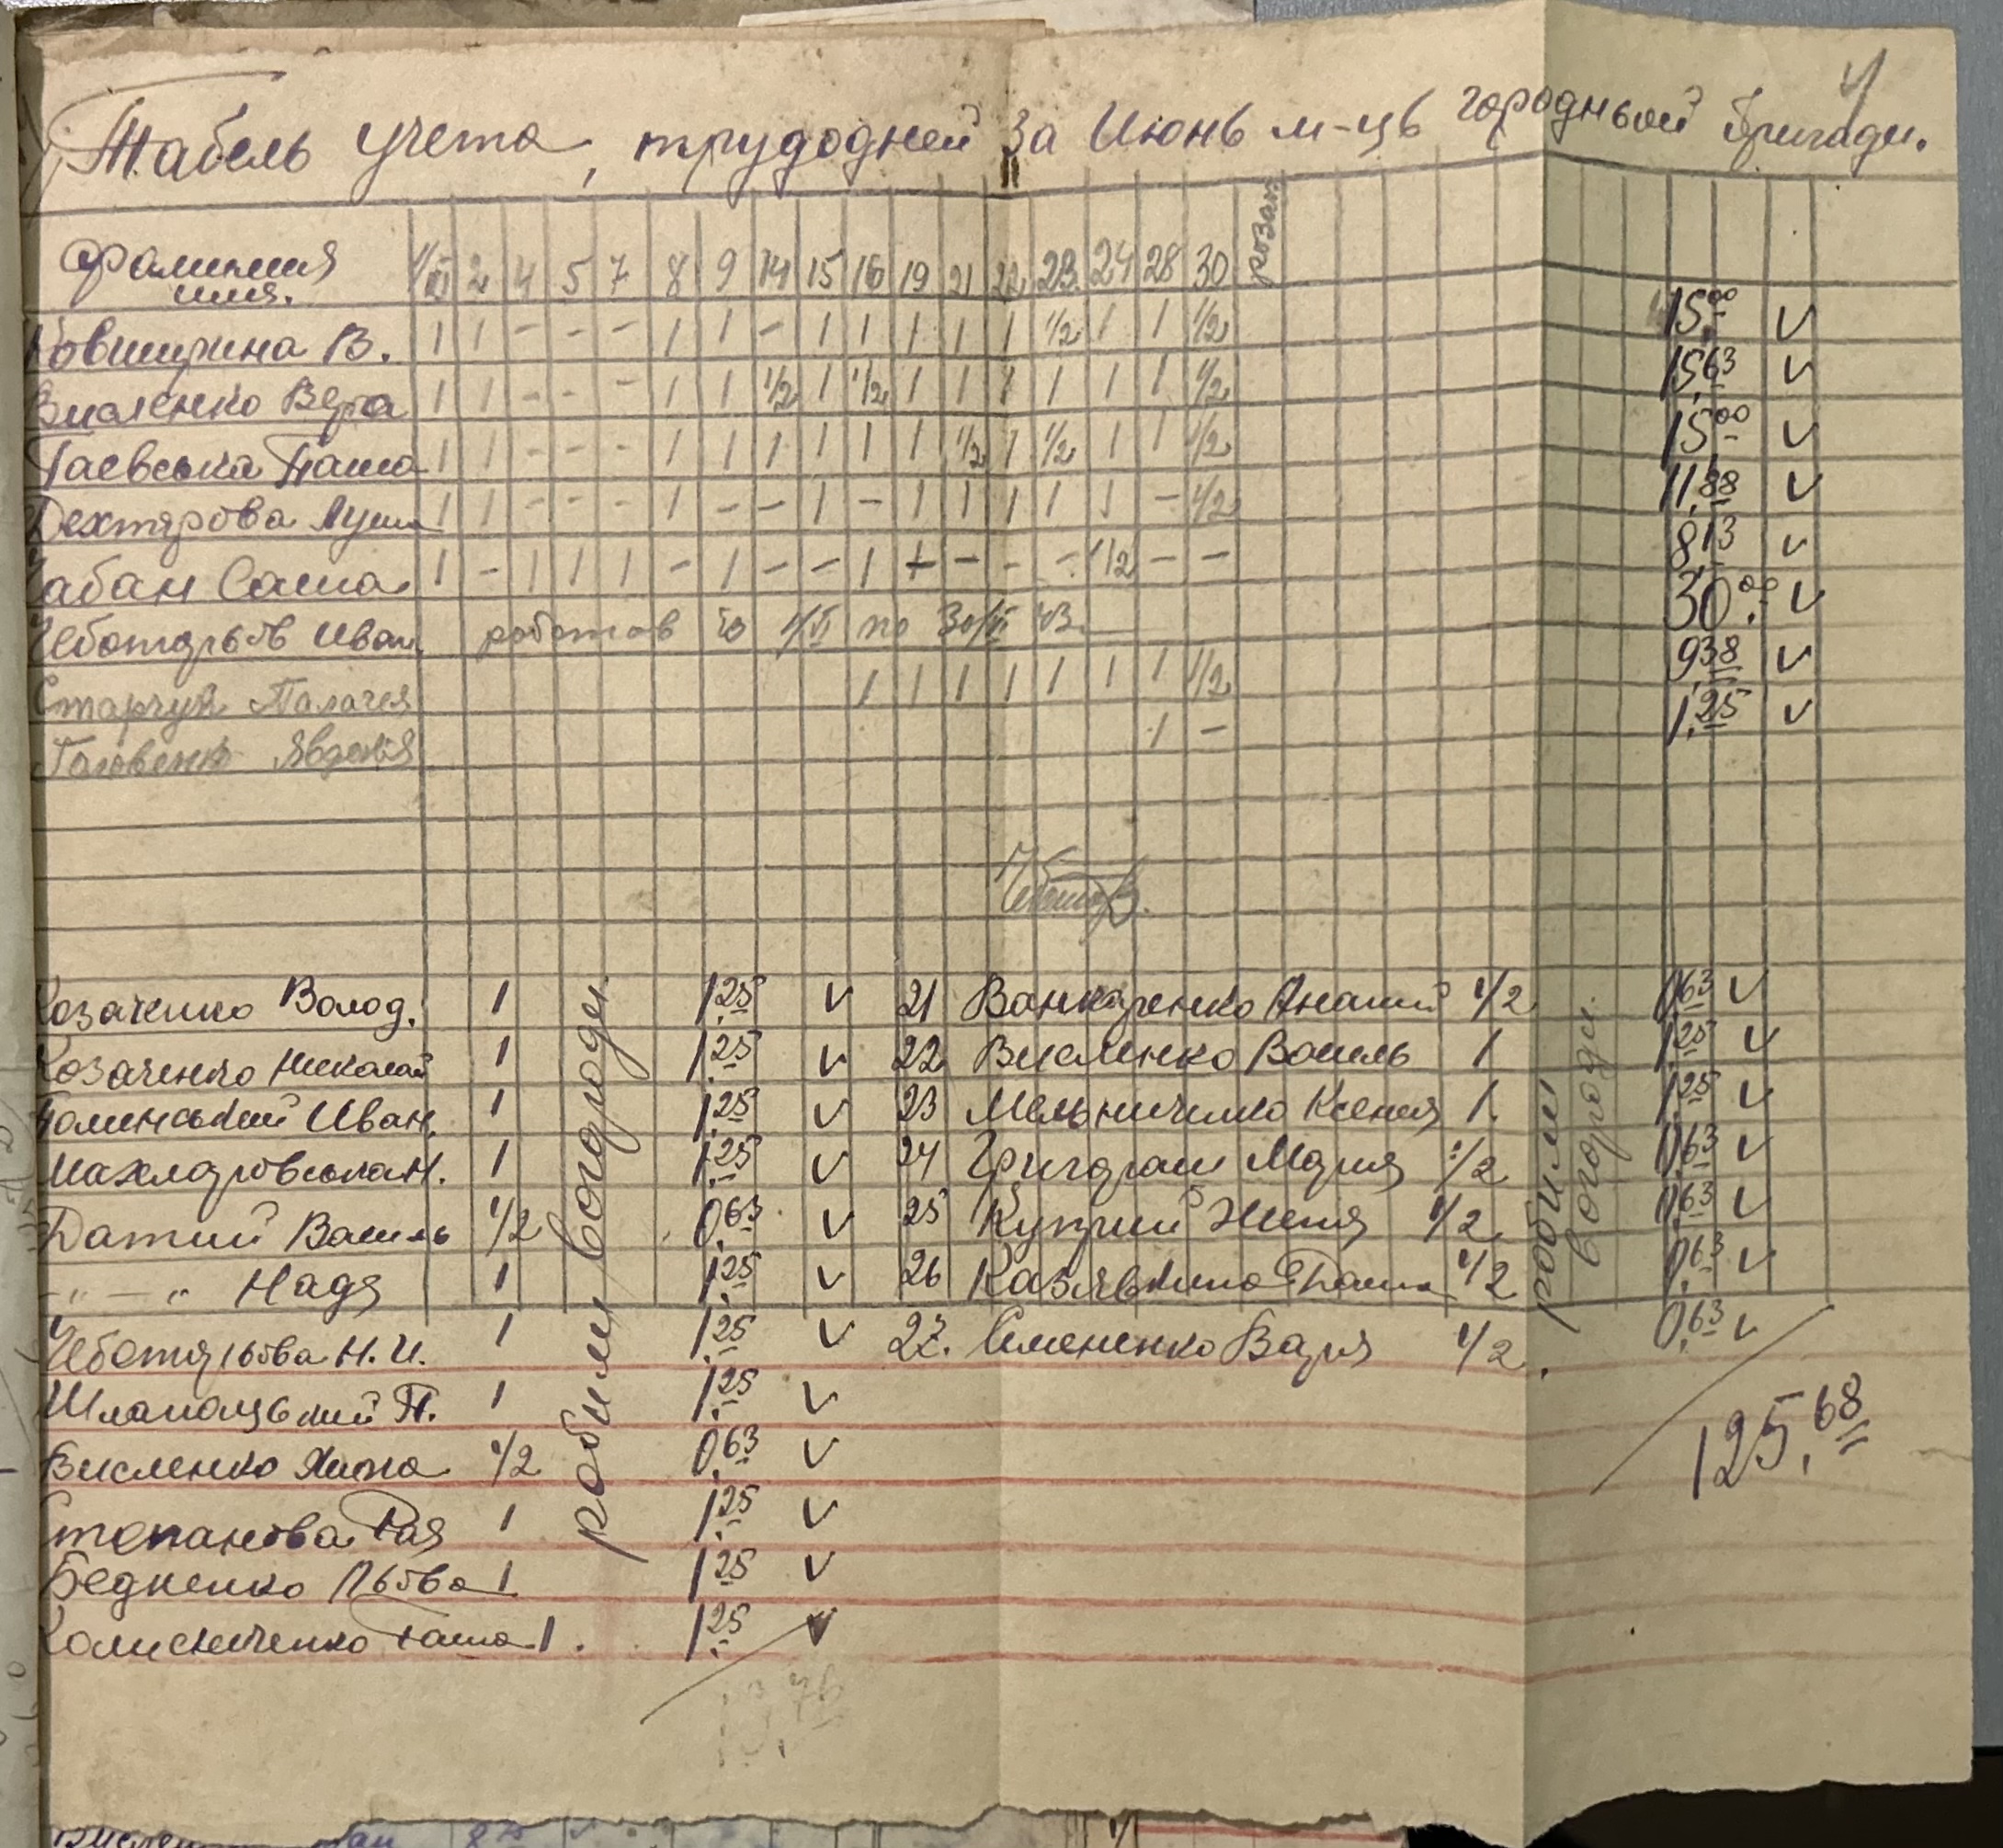 Табель учета, трудодней за Июнь м-ць городньой бригади.
фамилия имя. 1/VI 2 4 5 7 8 9 14 15 16 19 21 22 23 24 28 30
Ковширина В. 1 1 - - - 1 1 - 1 1 1 1 1 1/2 1 1 1/2 15,00 V
Висленко Вера 1 1 - - - 1 1 1/2 1 1/2 1 1 1 1 1 1 1/2 15,63 V
Гаевська Паша 1 1 - - - 1 1 1 1 1 1 1/2 1 1/2 1 1 1/2 15,00 V
Дехтярова Луша 1 1 - - - 1 - - 1 - 1 1 1 1 1 - 1/2 11,88 V
Чабан Саша 1 - 1 1 1 - 1 - - 1 + - - - 1/2 - - 8,13 V
Чеботарьов Иван. работав 1/VI по 30/VI 43 30,00 V
Старчук Палагея 1 1 1 1 1 1 1 1/2 9,38 V
Явдокія 1 - 1,25 V
Козаченко Волод. 1 1,25 V 21 Анатий 1/2 0,63 V
Козаченко Николай 1 1,25 V 22 Висленко Василь 1 1,25 V
Иван. 1 1,25 V 23 Мельниченко Ксения 1. 1,25 V
1 1,25 V 24 Мария 1/2 0,63 V
Датий Василь 1/2 0,63 V 25 Куприй Женя 1/2 0,63 V
-"-" Надя 1 1,25 V 26 1/2 0,63 V
Чеботарьова Н.И. 1 1,25 V 27. Семененко Варя 1/2. 0,63 V
П. 1 1,25 V
Висленко 1/2 0,63 V
Степанова Рая 1 1,25 V
Бедненко Львова 1 1,25 V
1. 1,25 V
робили в огороди
робили в огороди.
125,68